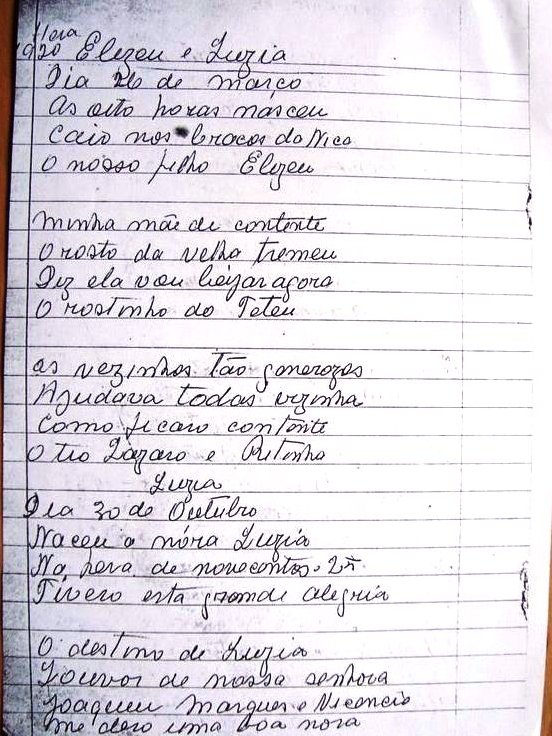 Hora
1920 Elizeu e Luzia
Dia 26 de março
As oito horas nasceu
Caio nos braços da Nica
O nosso filho Elizeu
minha mãe de contente
O rosto da velha tremeu
Diz ela vou beijar agora
O rostinho do Teteu
as vezinhas tão generozas
Ajudava todas vizinha
Como ficaro contente
O tio Lázaro e Ritinha
Luzia
Dia 30 de Outubro
Naceu a nóra Luzia
Na hora de
Tivero esta grande alegria
O destino de Luzia
Louvor de nossa senhora
Joaquim Marques e Vicencia
me dero uma boa nora